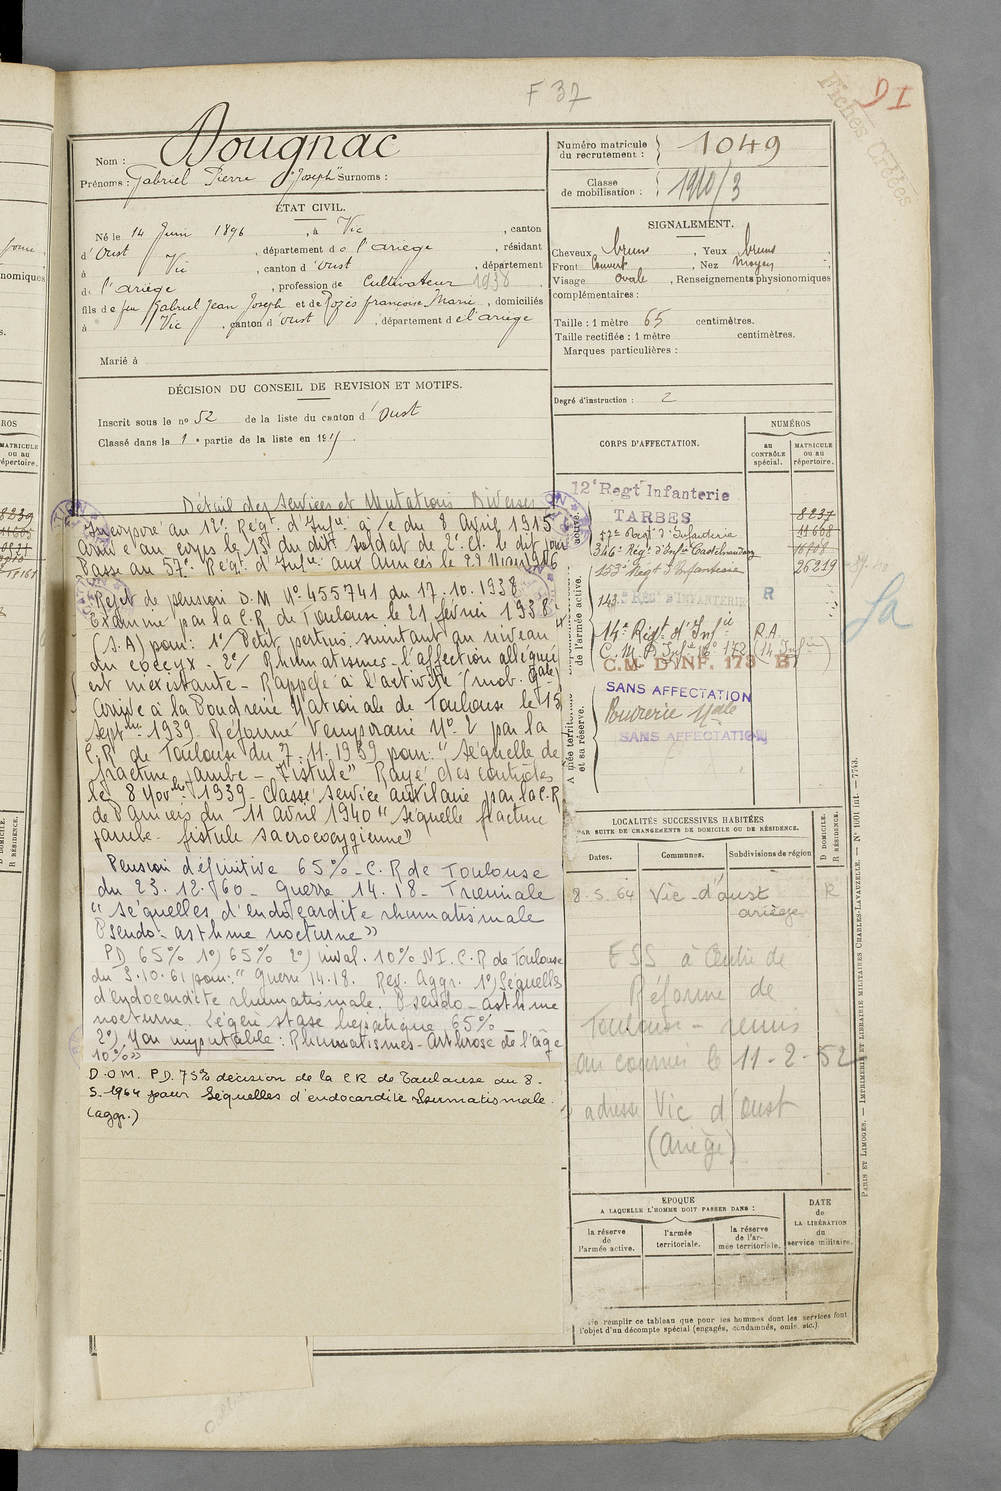 F 37
91
Fiches Créées
Nom : Dougnac
Prénoms : Gabriel Pierre Joseph Surnoms :
Numéro matricule du recrutement : 1049
Classe de mobilisation : 1910/3
ÉTAT CIVIL.
Né le 14 Juin 1896, à Vic, canton
d'Oust, département de l'ariège, résidant
à Vic, canton d'Oust, département
de l'ariège, profession de Cultivateur 1938
fils de feu Gabriel Jean Joseph et de Rozès françoise Marie, domiciliés
à Vic, canton d'oust, département de l'ariège
Marié à
SIGNALEMENT.
Cheveux bruns, Yeux bruns
Front Couvert, Nez moyen
Visage ovale, Renseignements physionomiques
complémentaires :
Taille : 1 mètre 65 centimètres.
Taille rectifiée : 1 mètre centimètres.
Marques particulières :
Degré d'instruction : 2
DÉCISION DU CONSEIL DE REVISION ET MOTIFS.
Inscrit sous le no 52 de la liste du canton d'Oust
Classé dans la 1e partie de la liste en 191
Détail des Services et Mutations Diverses
Incorporé au 12e Regt. d'Infie à/c du 8 Avril 1915
Arrivé au corps le 13 du dit. Soldat de 2e Cl. le dit jour
Passé au 57e Regt. d'Infie aux Armées le 22
Rejet de pension D.M No 455741 du 17.10.1938
Examiné par la C.R. de Toulouse le 21 février 1938
(S.A) pour : 1o/ Petit pertuis suintant au niveau
du coccyx - 2o/ Rhumatismes - l'affection alléguée
est inexistante - Rappelé à l'activité (mob. Gale)
Arrivé à la Poudrerie Nationale de Toulouse le 15
Septbre 1939. Réformé Temporaire No 2 par la
C.R. de Toulouse du 7.11.1939 pour : "Séquelle de
fracture jambe - Fistule" Rayé des contrôles
le 8 Novbre 1939 - Classé Service auxiliaire par la C.R
de Pamiers du 11 Avril 1940 "Séquelle fracture
jambe - fistule sacrococcygienne"
Pension définitive 65% - C.R de Toulouse
du 23.12.60 - Guerre 14.18 - Triennale
"Séquelles d'endocardite rhumatismale
Pseudo-asthme nocturne"
PD 65% 1o) 65% 2o) inval. 10% N.I. C.R de Toulouse
du 3.10.61 pour : "Guerre 14.18. Rev. Aggr. 1o) Séquelles
d'endocardite rhumatismale. Pseudo-asthme
nocturne. Légère stase hépatique 65% -
2o) Non imputable : Rhumatismes - Arthrose de l'âge
10%"
D.O.M. P.D. 75% décision de la CR de Toulouse du 8.
5.1964 pour Séquelles d'endocardite rhumatismale.
(aggr.)
CORPS D'AFFECTATION.
NUMÉROS
au CONTRÔLE spécial.
MATRICULE ou au répertoire.
12e Regt Infanterie
TARBES 8237
57e Regt d'Infanterie 11668
346e Régt d'Infie Castelnaudary
153e Regt d'Infanterie 26219
143e REGt D'INFANTERIE R
14e Regt d'Infie R.A.
C.M.D. Infie No 172 (14 Infie)
C.M. D'INF. 173 B
SANS AFFECTATION
Poudrerie Nale
SANS AFFECTATION
Armée territoriale et sa réserve.
de l'armée active.
fa
LOCALITÉS SUCCESSIVES HABITÉES
PAR SUITE DE CHANGEMENTS DE DOMICILE OU DE RÉSIDENCE.
Dates.
Communes.
Subdivisions de région
D DOMICILE.
R RÉSIDENCE.
8.5.64 Vic-d'oust ariège R
ESS à Centre de
Réforme de
Toulouse - remis
au courrier le 11-2-52
adresse Vic d'Oust
(Ariège)
EPOQUE
A LAQUELLE L'HOMME DOIT PASSER DANS :
la réserve de l'armée active.
l'armée territoriale.
la réserve de l'armée territoriale.
DATE de LA LIBÉRATION du service militaire.
Ne remplir ce tableau que pour les hommes dont les services font
l'objet d'un décompte spécial (engagés, condamnés, omis, etc.).
PARIS ET LIMOGES. — IMPRIMERIE ET LIBRAIRIE MILITAIRES CHARLES-LAVAUZELLE. — No 1001 int. — 7743.